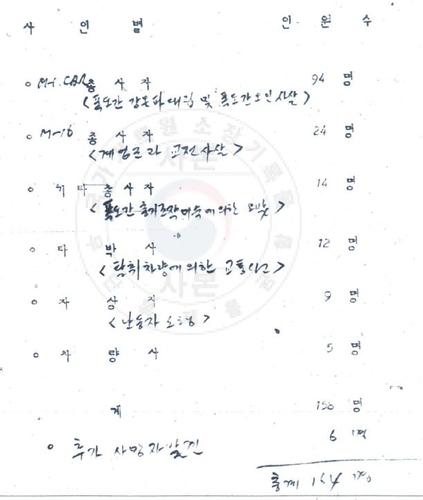 사 인 별 인 원 수
○ M-1. CAR 총 사 자 94 명
<폭도간 강온파 대립 및 폭도간 오인사살>
○ M-16 총 사 자 24 명
<계엄군과 교전사살>
○ 기 타 총 사 자 14 명
<폭도간 총기조작미숙에 의한 오발>
○ 타 박 사 12 명
<탈취차량에 의한 교통사고>
○ 자 상 자 9 명
<난동자 소행>
○ 차 량 사 5 명
계 158 명
○ 추가 사망자 발견 6 명
총계 164 명